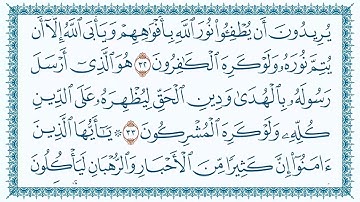 يُرِيدُونَ أَن يُطْفِـُٔوا۟ نُورَ ٱللَّهِ بِأَفْوَٰهِهِمْ وَيَأْبَى ٱللَّهُ إِلَّآ أَن
يُتِمَّ نُورَهُۥ وَلَوْ كَرِهَ ٱلْكَٰفِرُونَ ٣٢ هُوَ ٱلَّذِىٓ أَرْسَلَ
رَسُولَهُۥ بِٱلْهُدَىٰ وَدِينِ ٱلْحَقِّ لِيُظْهِرَهُۥ عَلَى ٱلدِّينِ
كُلِّهِۦ وَلَوْ كَرِهَ ٱلْمُشْرِكُونَ ٣٣ ۞ يَٰٓأَيُّهَا ٱلَّذِينَ
ءَامَنُوٓا۟ إِنَّ كَثِيرًا مِّنَ ٱلْأَحْبَارِ وَٱلرُّهْبَانِ لَيَأْكُلُونَ